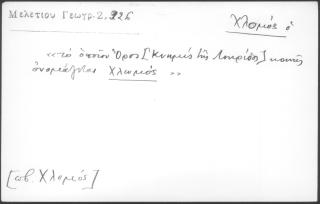 Μελετίου Γεωγρ. 2, 326
Χλομός ὁ
«το ὁποῖον Ὄρος [Κνημίς τῆς Λοκρίδος] κοινῶς
ὀνομάζεται Χλωμός»
[πβ. Χλομός]